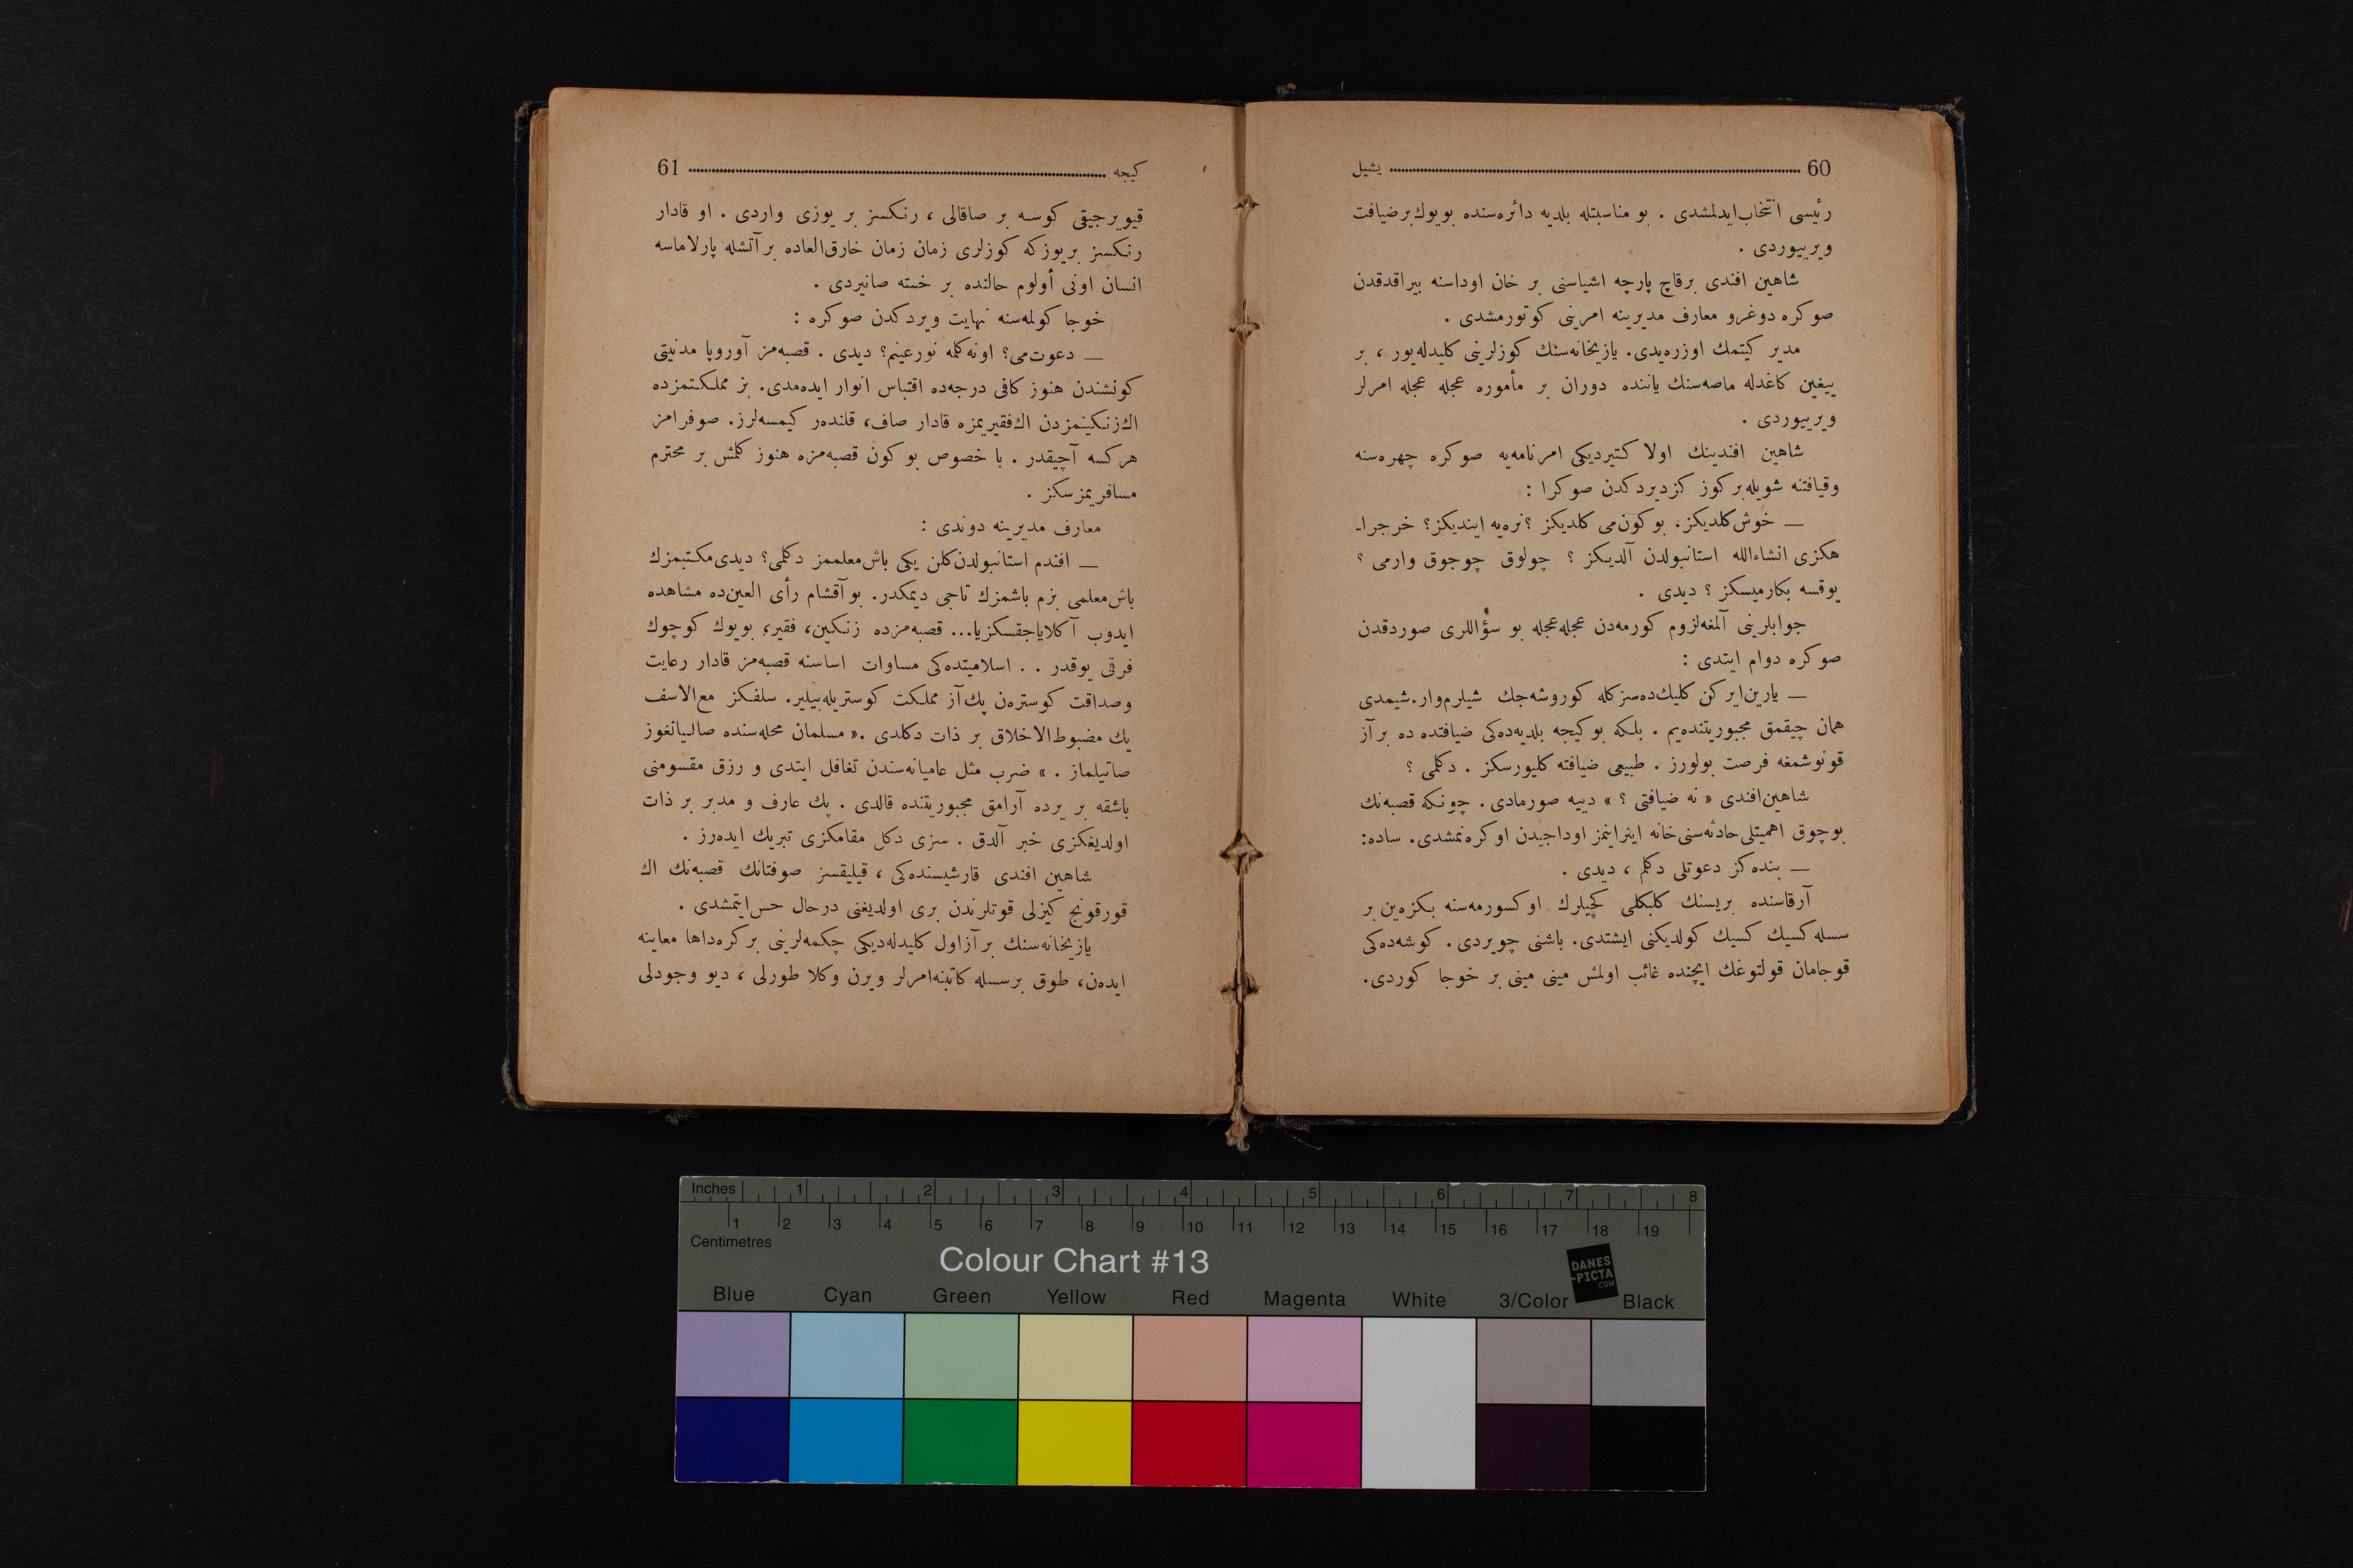 60 يشيل
رئيسی انتخاب ايدلمشدی . بو مناسبتله بلديه دائره‌سنده بويوك بر ضيافت
ويرييوردی .
شاهين افندی برقاچ پارچه اشياسنی بر خان اوداسنه بيراقدقدن
صوكره دوغرو معارف مديرينه امرينی كوتورمشدی .
مدير كيتمك اوزره‌يدی. يازيخانه‌سنك كوزلرينی كليدله‌يور ، بر
ييغين كاغدله ماصه‌سنك ياننده دوران بر مأموره عجله عجله امرلر
ويرييوردی .
شاهين افندينك اولا كتيرديكی امرنامه‌يه صوكره چهره‌سنه
وقيافتنه شويله بر كوز كزديردكدن صوكرا :
— خوش كلديكز. بو كون‌می كلديكز ؟ نره‌يه اينديكز؟ خرجرا-
هكزی انشاءالله استانبولدن آلديكز ؟ چولوق چوجوق وارمی ؟
يوقسه بكارميسكز ؟ ديدی .
جوابلرينی آلمغه لزوم كورمه‌دن عجله عجله بو سؤاللری صوردقدن
صوكره دوام ايتدی :
— يارين ايركن كليك ده سزكله كوروشه‌جك شيلرم وار. شيمدی
همان چيقمق مجبوريتنده‌يم . بلكه بو كيجه بلديه‌ده‌كی ضيافتده ده بر آز
قونوشمغه فرصت بولورز . طبيعی ضيافته كليورسكز . دكلمی ؟
شاهين افندی « نه ضيافتی ؟ » دييه صورمادی . چونكه قصبه‌نك
بوچوق اهميتلی حادثه‌سنی خانه اينر اينمز اوداجيدن اوكره‌نمشدی. ساده:
— بنده‌كز دعوتلی دكلم ، ديدی .
آرقاسنده بريسنك كلبكلی كچيلرك اوكسورمه‌سنه بكزه‌ين بر
سسله كسيك كسيك كولديكنی ايشتدی. باشنی چويردی . كوشه‌ده‌كی
قوجامان قولتوغك ايچنده غائب اولمش مينی مينی بر خوجا كوردی.
كيجه 61
قيويرجيقی كوسه بر صاقالی ، رنكسز بر يوزی واردی . او قادار
رنكسز بر يوزكه كوزلری زمان زمان خارق‌العاده بر آتشله پارلاماسه
انسان اونی أولوم حالنده بر خسته صانيردی .
خوجا كولمه‌سنه نهايت ويردكدن صوكره :
— دعوت‌می؟ اونه كلمه نورعينم؟ ديدی . قصبه‌مز آوروپا مدنيتی
كونشندن هنوز كافی درجه‌ده اقتباس انوار ايده‌مدی. بز مملكتمزده
اك زنكينمزدن اك فقيريمزه قادار صاف، قلندەر كيمسه‌لرز. صوفرامز
هركسه آچيقدر . با خصوص بو كون قصبه‌مزه هنوز كلمش بر محترم
مسافريمزسكز .
معارف مديرينه دوندی :
— افندم استانبولدن كلن يكی باش معلممز دكلمی؟ ديدی مكتبمزك
باش معلمی بزم باشمزك تاجی ديمكدر. بو آقشام رأی العين‌ده مشاهده
ايدوب آكلاياجقسكزيا... قصبه‌مزده زنكين، فقير، بويوك كوچوك
فرقی يوقدر . . اسلاميتده‌كی مساوات اساسنه قصبه‌مز قادار رعايت
وصداقت كوسترەن پك آز مملكت كوستريله‌بيلير. سلفكز مع‌الاسف
پك مضبوط‌الاخلاق بر ذات دكلدی .« مسلمان محله‌سنده صاليانغوز
صاتيلماز . » ضرب مثل عاميانه‌سندن تغافل ايتدی و رزق مقسومنی
باشقه بر يرده آرامق مجبوريتنده قالدی . پك عارف و مدبر بر ذات
اولديغكزی خبر آلدق . سزی دكل مقامكزی تبريك ايدەرز .
شاهين افندی قارشيسنده‌كی ، قيليقسز صوفتانك قصبه‌نك اك
قورقونج كيزلی قوتلرندن بری اولديغنی درحال حس ايتمشدی .
يازيخانه‌سنك بر آز اول كليدله‌ديكی چكمه‌لرينی بر كره‌داها معاينه
ايدەن، طوق بر سسله كاتبنه امرلر ويرن وكلا طورلی ، ديو وجودلی
Inches 1 2 3 4 5 6 7 8
1 2 3 4 5 6 7 8 9 10 11 12 13 14 15 16 17 18 19
Centimetres
Colour Chart #13
DANES
-PICTA
.COM
Blue Cyan Green Yellow Red Magenta White 3/Color Black